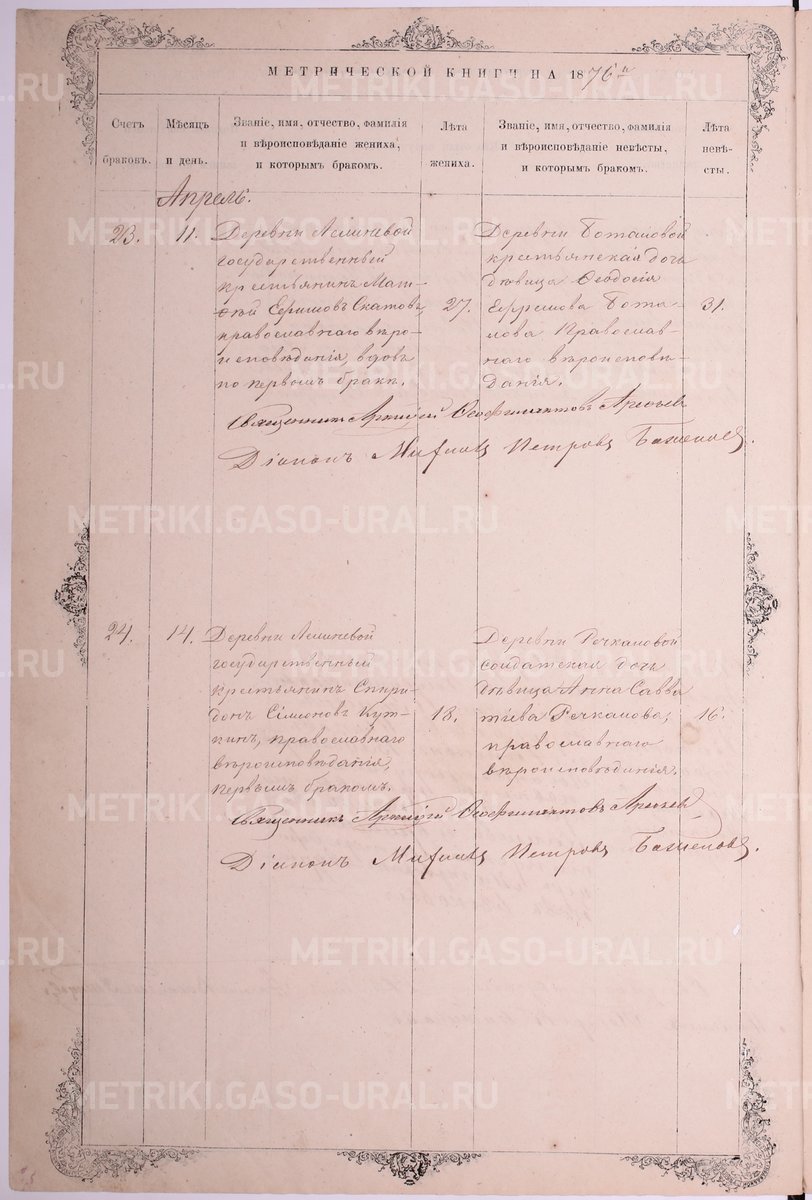 МЕТРИЧЕСКОЙ КНИГИ НА 1876й
Счетъ браковъ.
Мѣсяцъ и день.
Званіе, имя, отчество, фамилія
и вѣроисповѣданіе жениха,
и которымъ бракомъ.
Лѣта
жениха.
Званіе, имя, отчество, фамилія
и вѣроисповѣданіе невѣсты,
и которымъ бракомъ.
Лѣта
невѣ-
сты.
Апрель.
23.
11.
Деревни
государственный
крестьянинъ Мат-
ѳей Ефимовъ Скатовъ,
православнаго вѣро-
исповѣданія, вдовъ
по первомъ бракѣ.
27.
Деревни Боталовой
крестьянская дочь
дѣвица Ѳеодосія
Ефремова Бота-
лова Православ-
наго вѣроисповѣ-
данія.
31.
Священникъ Арефьевъ
Діаконъ Михаилъ Петровъ Баженовъ.
24.
14.
Деревни
государственный
крестьянинъ Спири-
донъ Сімеоновъ
православнаго
вѣроисповѣданія,
первымъ бракомъ.
18.
Деревни Речкаловой
солдатская дочь
дѣвица Анна Савва
тіева Речкалова,
православнаго
вѣроисповѣданія.
16.
Священникъ Арефьевъ
Діаконъ Михаилъ Петровъ Баженовъ.
METRIKI.GASO-URAL.RU